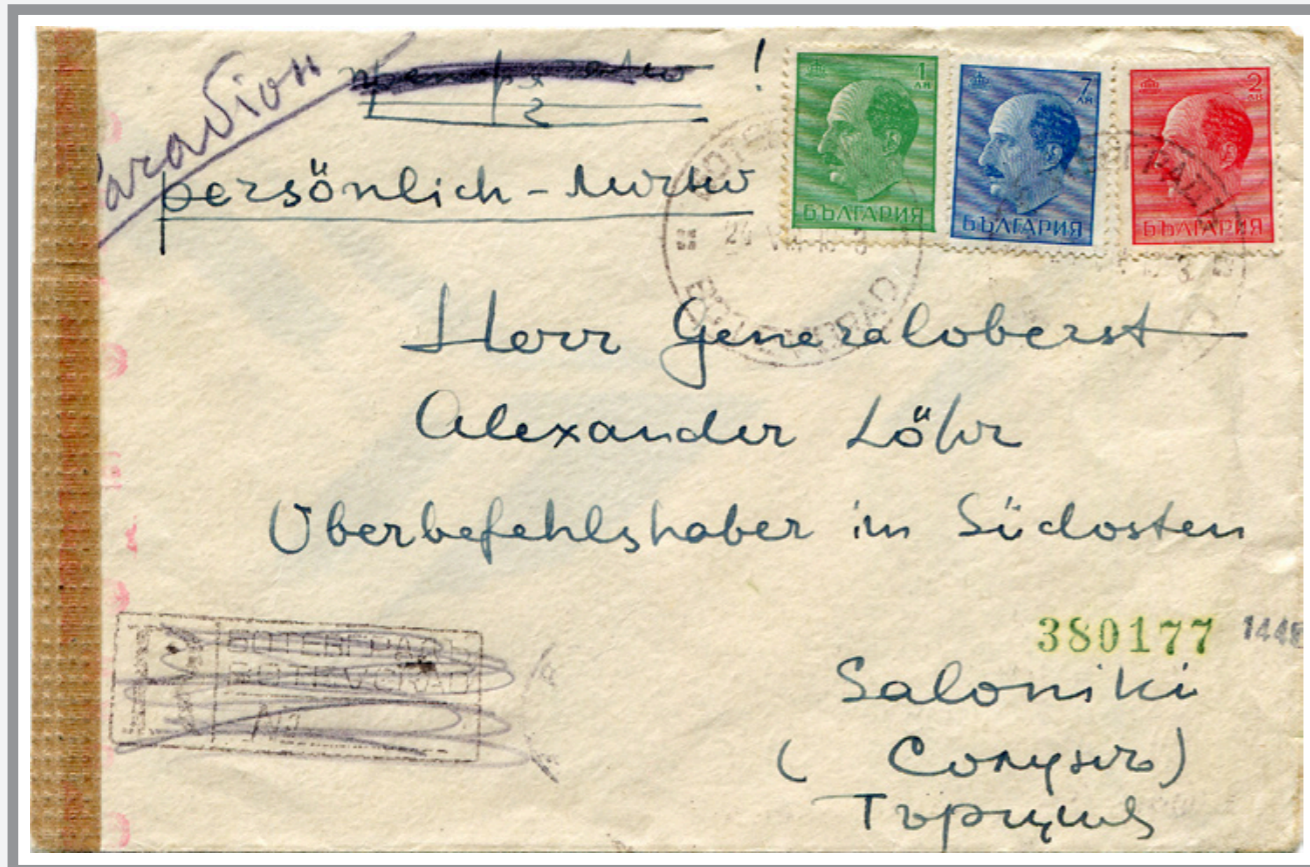 Paravion
!
persönlich - лично
1 ЛВ
БЪЛГАРИЯ
7 ЛВ
БЪЛГАРИЯ
2 ЛВ
БЪЛГАРИЯ
BOTEVGRAD
Herr Generaloberst
Alexander Löhr
Oberbefehlshaber im Südosten
380177
1448
БОТЕВГРАДЪ
BOTEVGRAD
No
Saloniki
(Солунъ)
Гърция